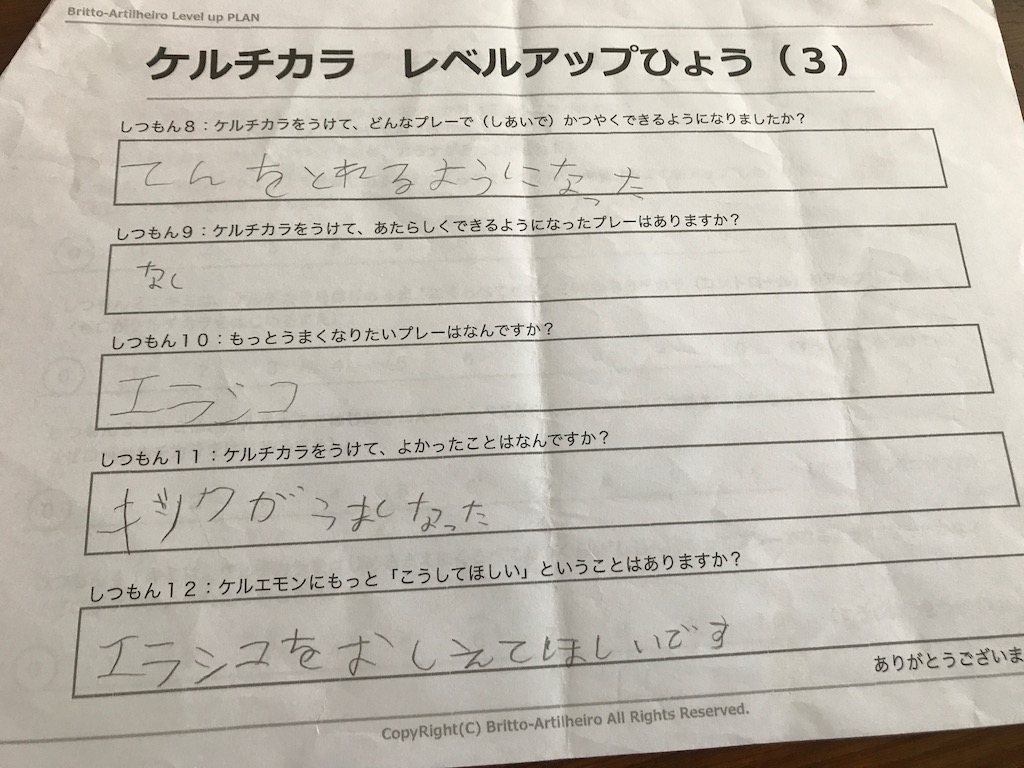 Britto-Artilheiro Level up PLAN
ケルチカラ レベルアップひょう（３）
しつもん８：ケルチカラをうけて、どんなプレーで（しあいで）かつやくできるようになりましたか？
てんをとれるようになった
しつもん９：ケルチカラをうけて、あたらしくできるようになったプレーはありますか？
なし
しつもん１０：もっとうまくなりたいプレーはなんですか？
エラシコ
しつもん１１：ケルチカラをうけて、よかったことはなんですか？
キックがうまくなった
しつもん１２：ケルエモンにもっと「こうしてほしい」ということはありますか？
エラシコをおしえてほしいです
ありがとうございま
CopyRight(C) Britto-Artilheiro All Rights Reserved.